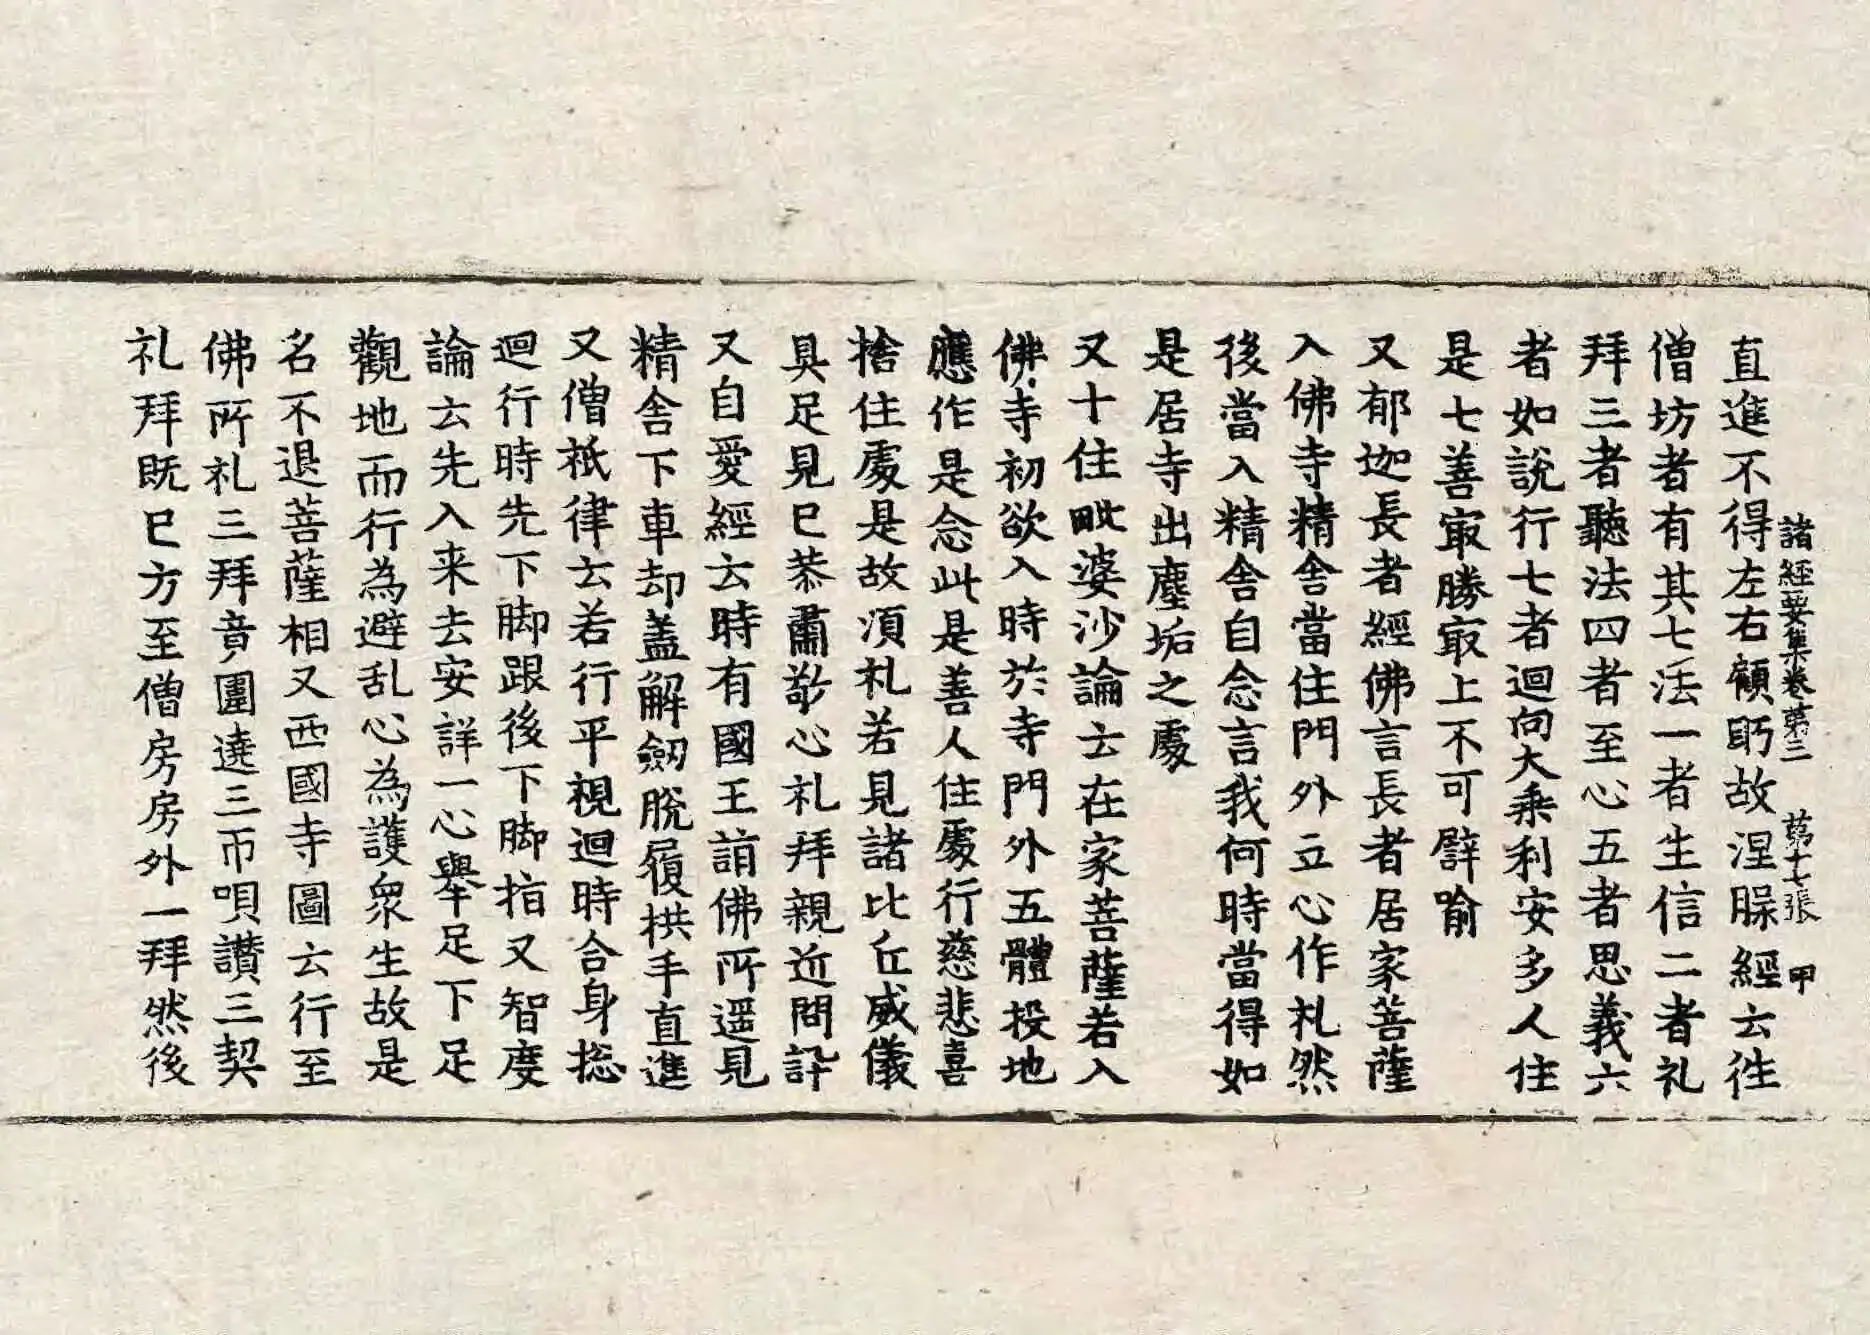 諸經要集卷第三　第十七張　甲
直進不得左右顧眄故涅槃經云往
僧坊者有其七法一者生信二者礼
拜三者聽法四者至心五者思義六
者如說行七者迴向大乘利安多人住
是七善冣勝冣上不可譬喻
又郁迦長者經佛言長者居家菩薩
入佛寺精舍當住門外立心作礼然
後當入精舍自念言我何時當得如
是居寺出塵垢之處
又十住毗婆沙論云在家菩薩若入
佛寺初欲入時於寺門外五體投地
應作是念此是善人住處行慈悲喜
捨住處是故湏礼若見諸比丘威儀
具足見已恭肅敬心礼拜親近問訊
又自愛經云時有國王詣佛所遥見
精舍下車却蓋解劔脫履拱手直進
又僧祇律云若行平視迴時合身捴
迴行時先下脚跟後下脚指又智度
論云先入来去安詳一心舉足下足
觀地而行為避乱心為護衆生故是
名不退菩薩相又西國寺圖云行至
佛所礼三拜竟圍遶三帀唄讚三契
礼拜既已方至僧房房外一拜然後